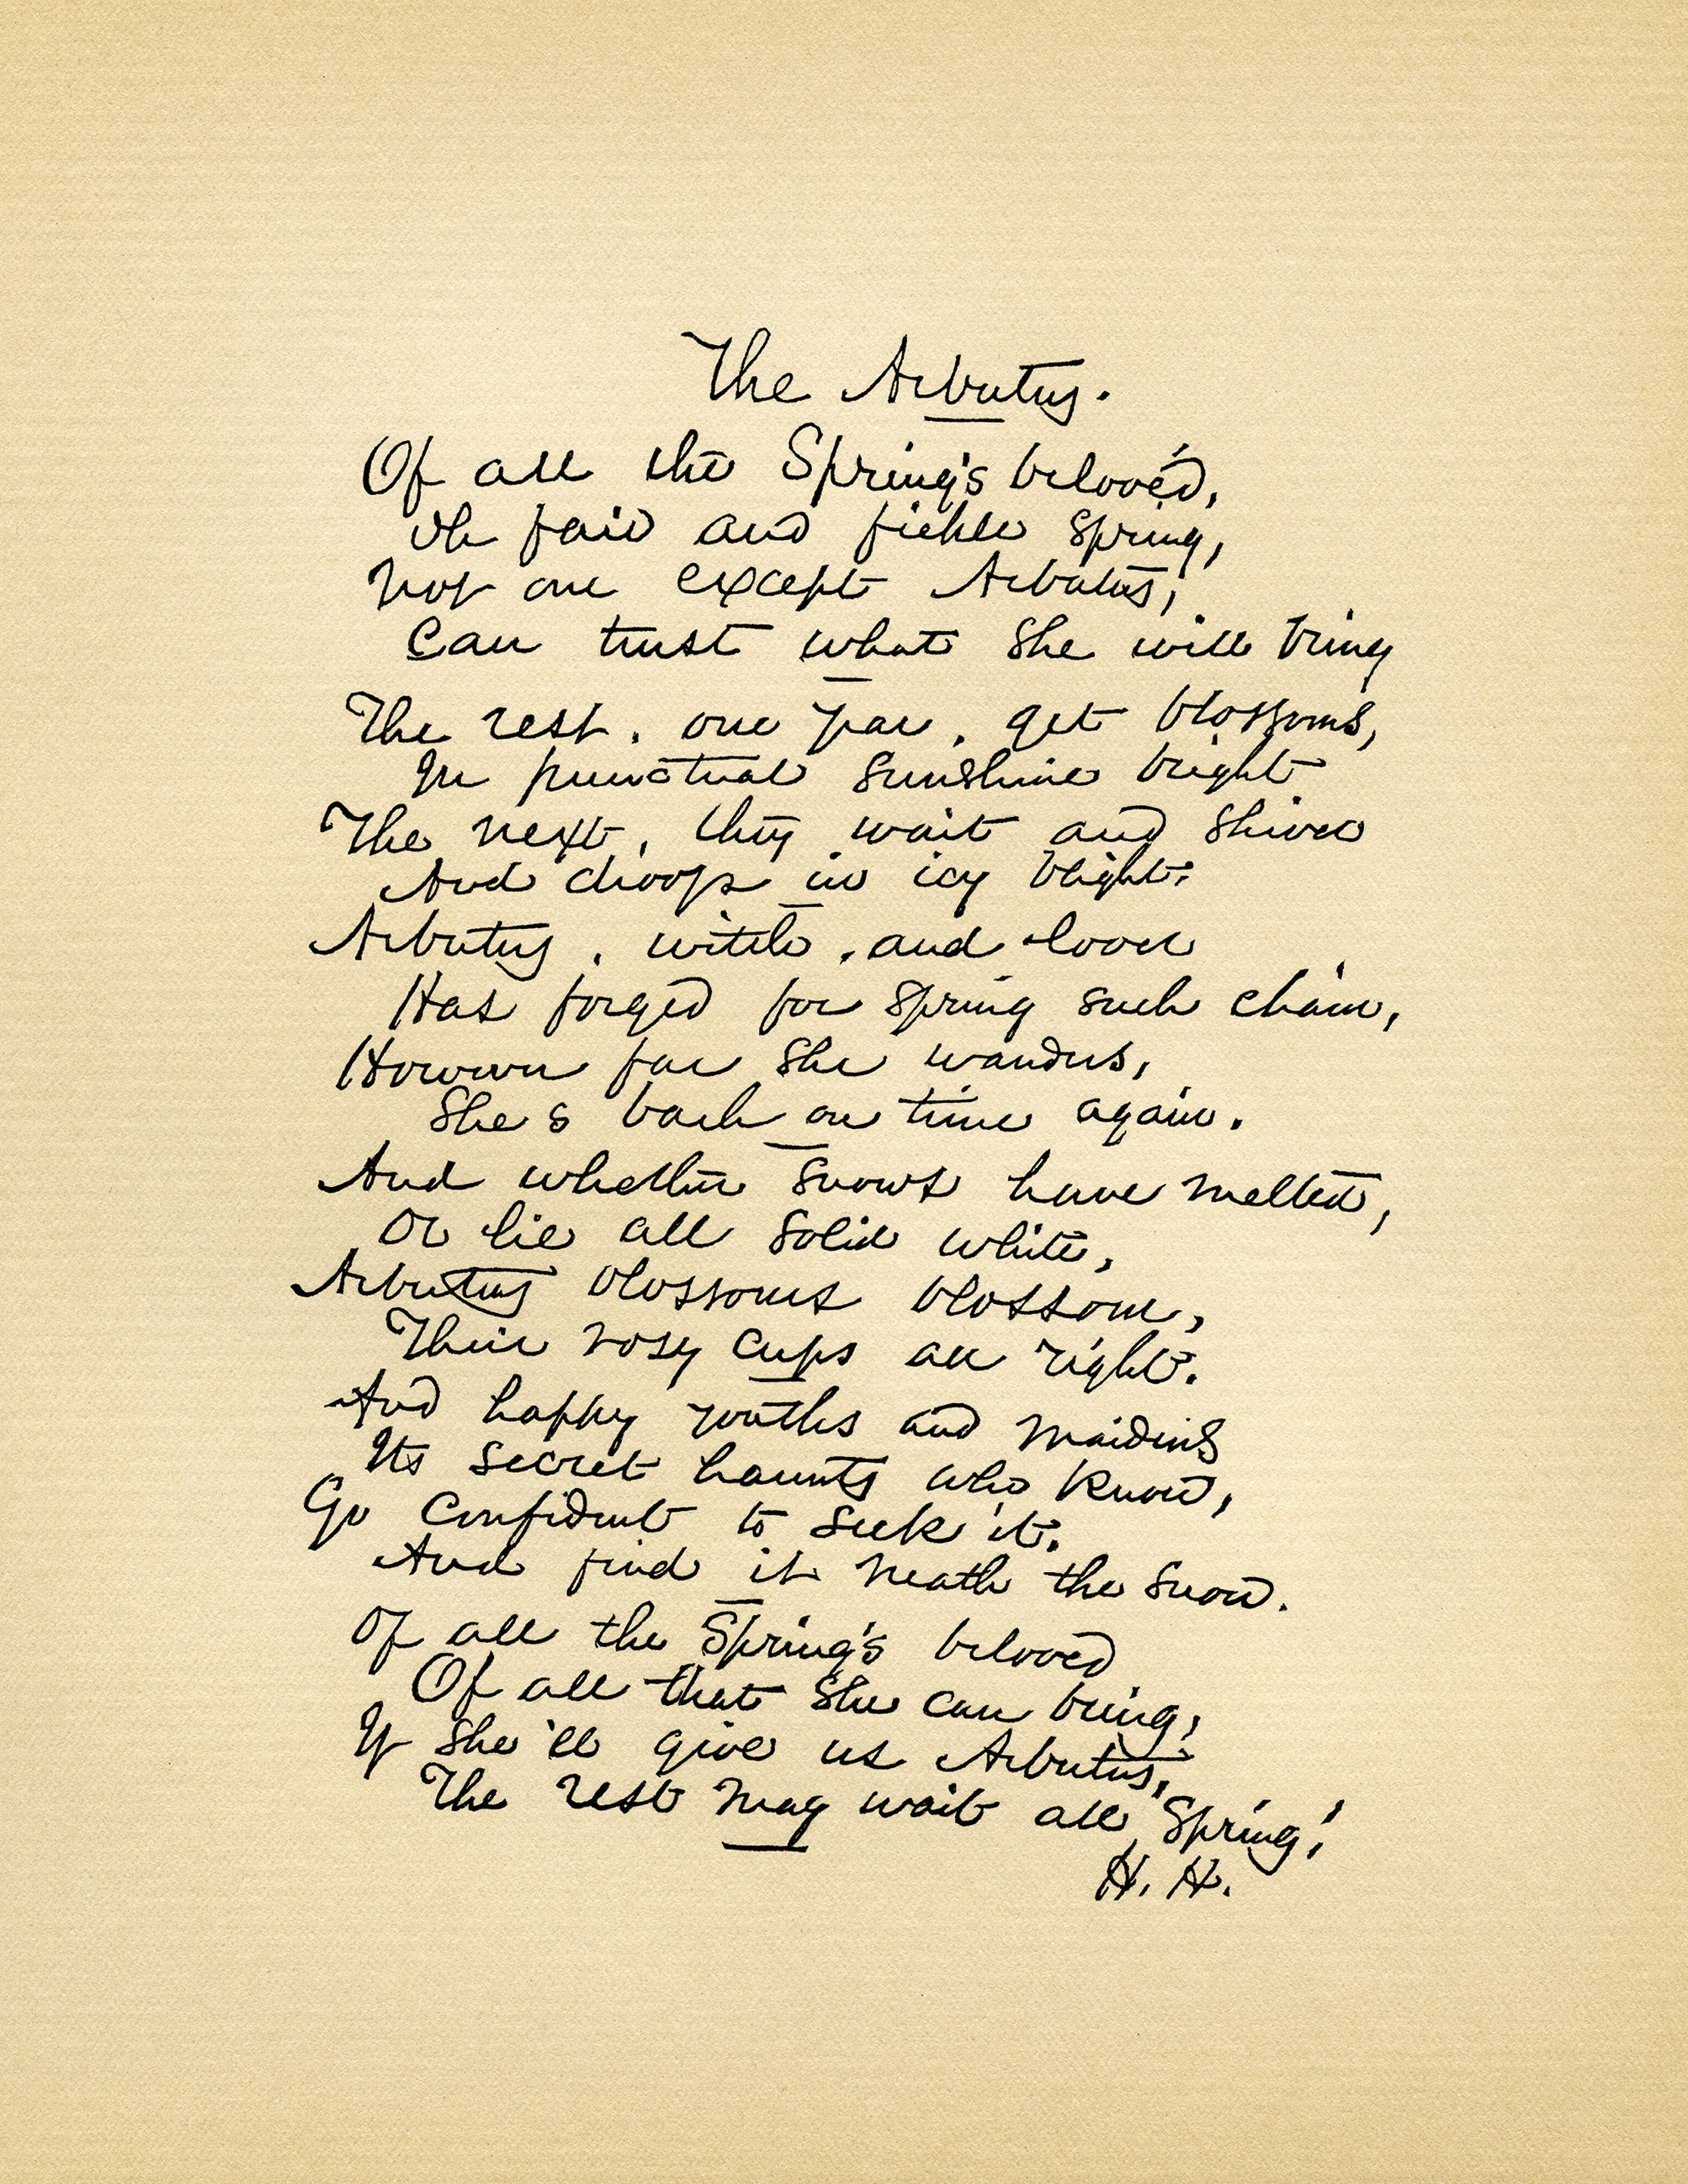 The Arbutus.
Of all the Spring's belovéd,
Oh fair and fickle Spring,
Not one except Arbutus,
Can trust what she will bring
The rest, one year, get blossoms,
In punctual sunshine bright
The next, they wait and shiver
And droop in icy blight:
Arbutus, witch, and lover
Has forged for spring such chain,
However far she wanders,
She's back on time again.
And whether snows have melted,
Or lie all solid white,
Arbutus blossoms blossom,
Their rosy cups all right.
And happy youths and maidens
Its secret haunts who know,
Go confident to seek it,
And find it neath the snow.
Of all the Spring's beloved
Of all that she can bring,
If she'll give us Arbutus,
The rest may wait all Spring!
H. H.